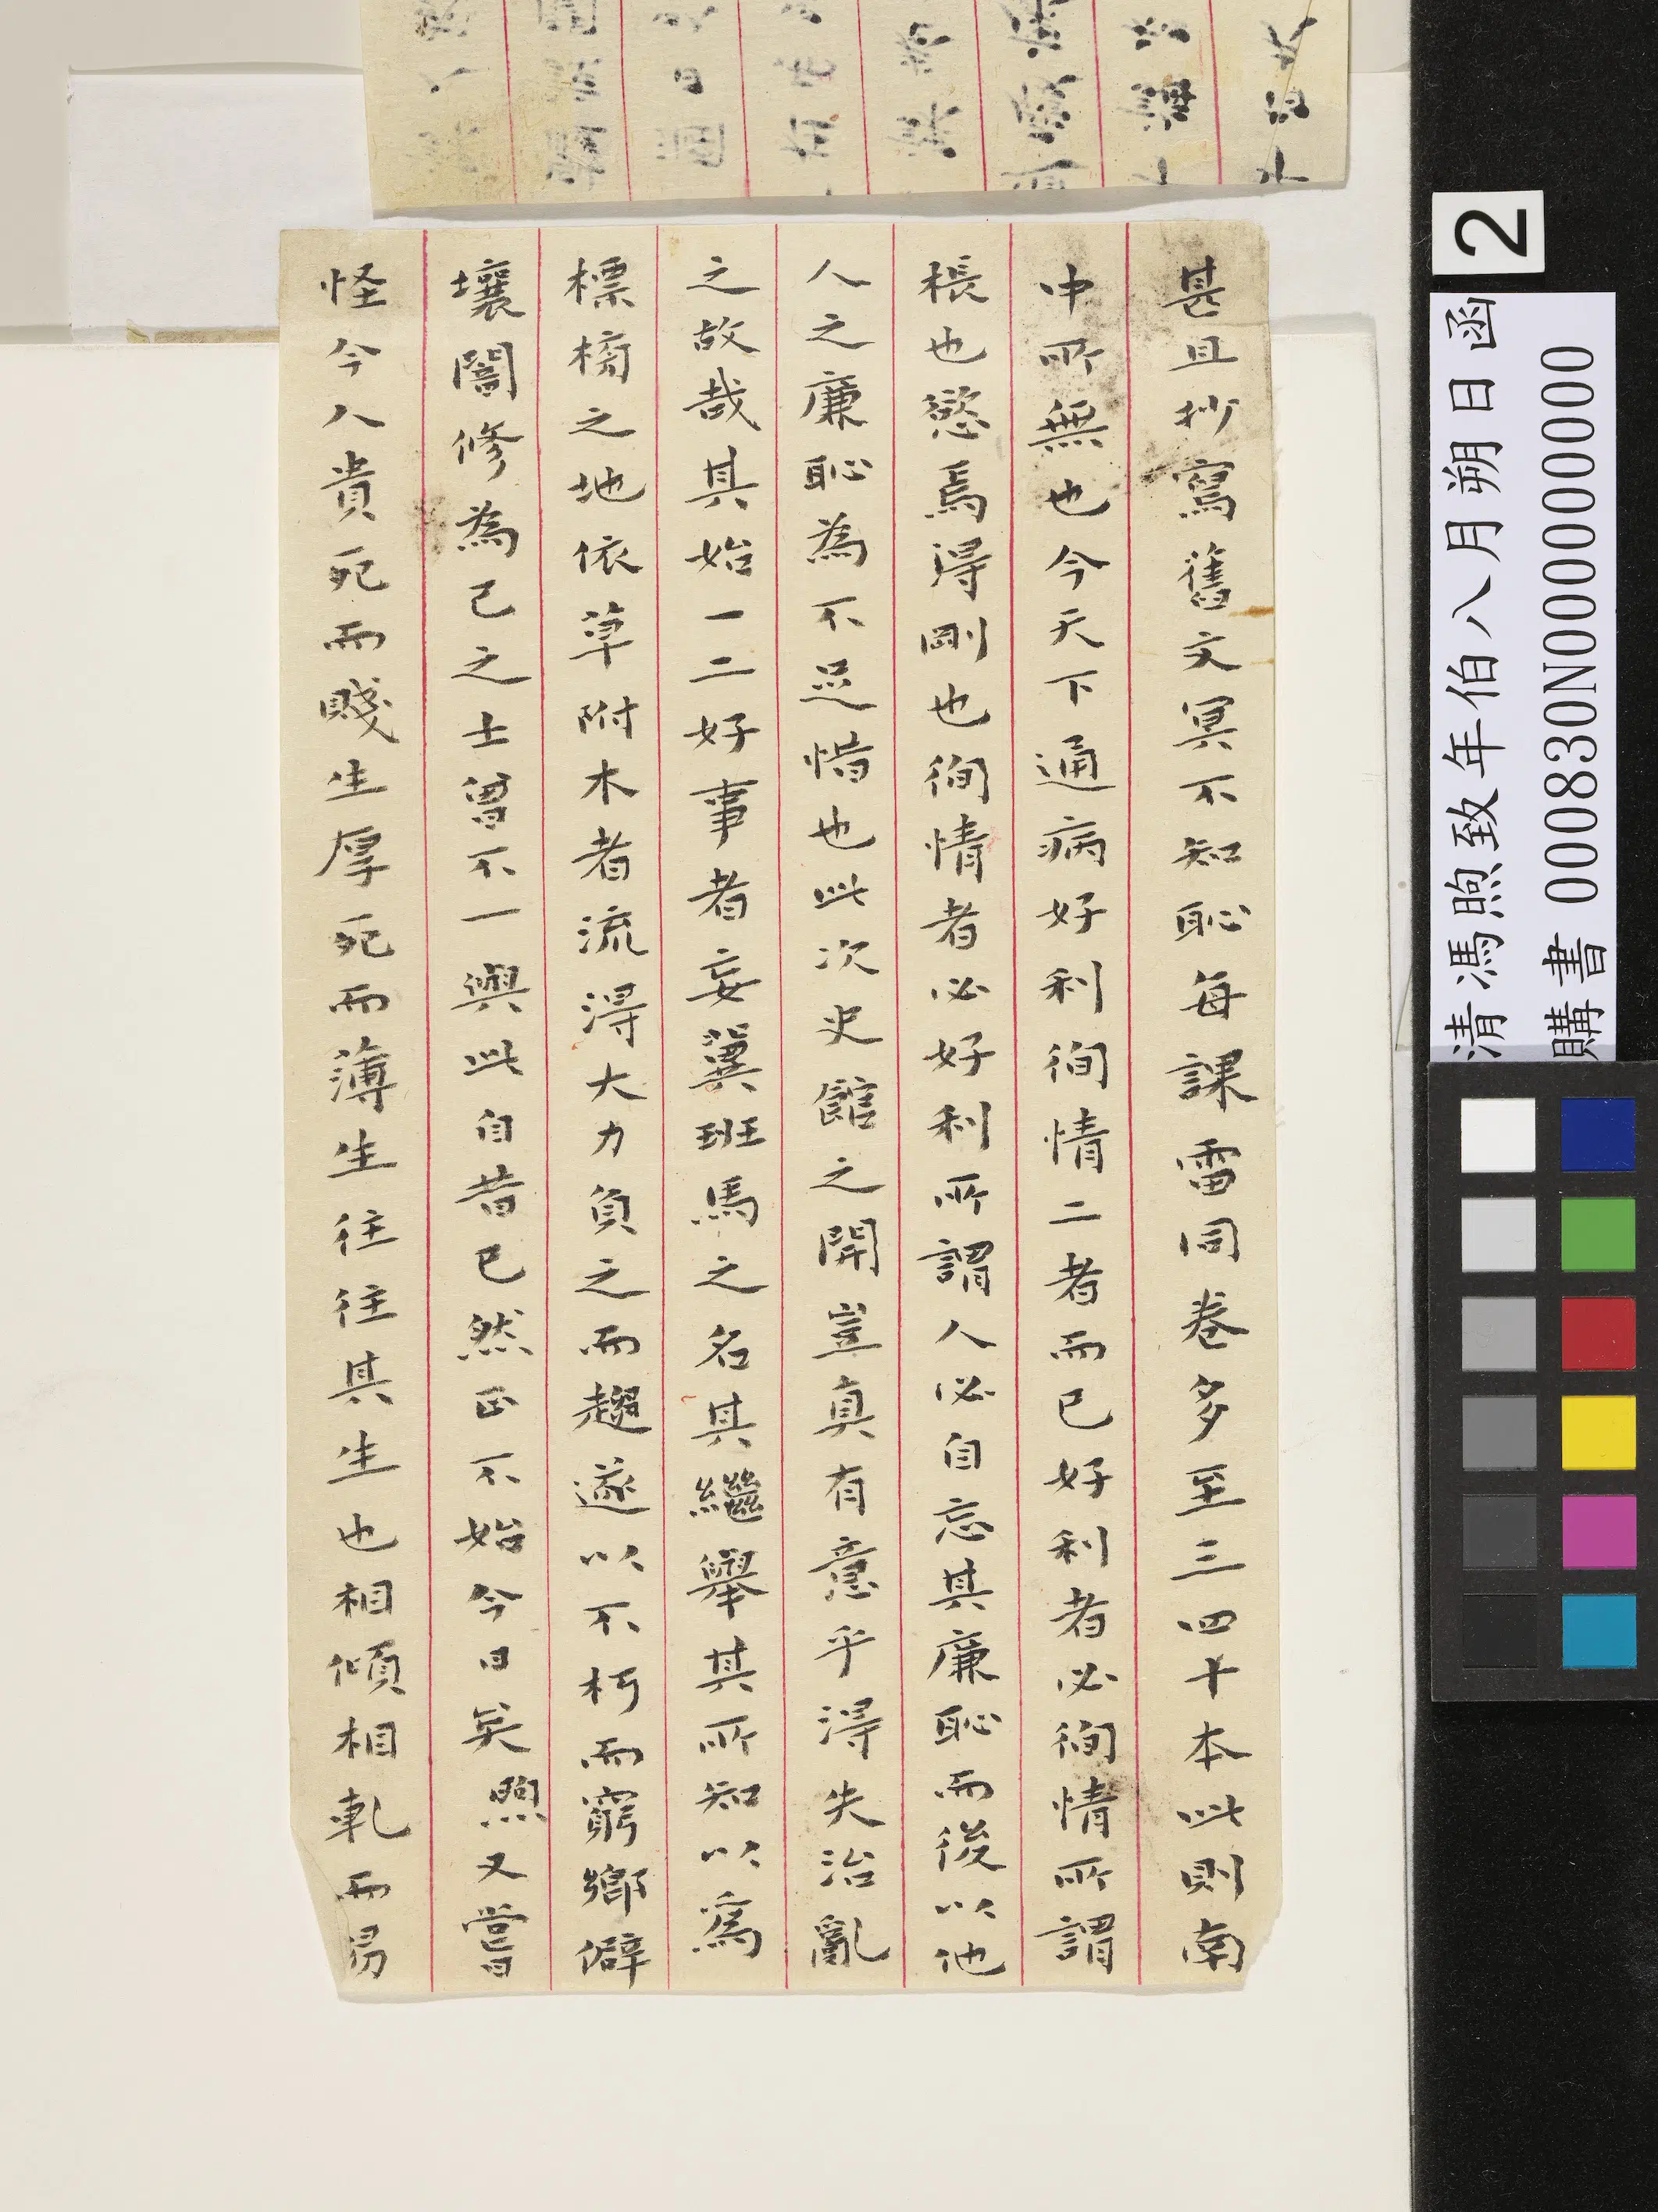 甚且抄寫舊文冥不知恥每課雷同卷多至三四十本此則南
中所無也今天下通病好利徇情二者而已好利者必徇情所謂
棖也慾焉得剛也徇情者必好利所謂人必自忘其廉恥而後以他
人之廉恥為不足惜也此次史館之開豈真有意乎得失治亂
之故哉其始一二好事者妄冀班馬之名其繼舉其所知以為
標榜之地依草附木者流得大力負之而趨遂以不朽而窮鄉僻
壤闇修為己之士曾不一與此自昔已然正不始今日矣煦又嘗
怪今人貴死而賤生厚死而薄生往往其生也相傾相軋而易
2
清馮煦致年伯八月朔日函
購書 000830N000000000